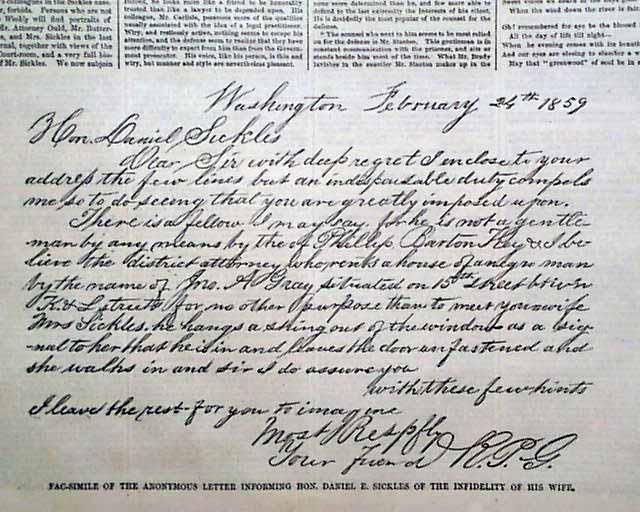 colleagues in the Dockless case.
forble. Persons who are not
Weekly will find portraits of
Mr. Attorney Ould, Mr. Butter-
and Mrs. Sickles in the last
together with views of the
Court-room, and a very full
of Mr. Sickles. We now subjoin
indeed, he looks more like a friend to be honestly
trusted than like a lawyer to be depended upon. His
colleague, Mr. Carlisle, possesses more of the qualities
usually associated with the idea of a legal practitioner.
Wiry, and restlessly active, nothing seems to escape his
attention, and the defense seem to realize that they have
more difficulty to expect from him than from the Govern-
mental prosecutor. His voice, like his person, is thin and
wiry, but manner and style are nevertheless pleasant.
some were determined than he, and few more able to
defend to the last extremity the interests of his client.
He is decidedly the most popular of the counsel for the
defense.
"The counsel who next to him seems to be most relied
on for the defense is Mr. Stanton. This gentleman is in
constant communication with the prisoner, and sits or
stands beside him most of the time. What Mr. Brady
lavishes in the smoother Mr. Stanton makes up in the
What the wind down the river is
Oh! remembered for aye be the blessed
All the day of life till night—
When he evening comes with its beauti
And our eyes are closing to slumber
May that "greenwood" of soul be in s
Washington February 24th 1859
Hon. Daniel Sickles
Dear Sir with deep regret I enclose to your
address the few lines but an indispensable duty compels
me so to do seeing that you are greatly imposed upon.
There is a fellow I may say, for he is not a gentle-
man by any means by the of Phillip Barton Key & I be-
lieve the district attorney who rents a house of a negro man
by the name of Jno. A. Gray situated on 15th street btwn
K & L streets for no other purpose than to meet your wife
Mrs Sickles. he hangs a string out of the window as a sig-
nal to her that he is in and leaves the door unfastened and
she walks in and sir I do assure you
with these few hints
I leave the rest for you to imagine
Most Respfly
Your friend R. P. G.
FAC-SIMILE OF THE ANONYMOUS LETTER INFORMING HON. DANIEL E. SICKLES OF THE INFIDELITY OF HIS WIFE.